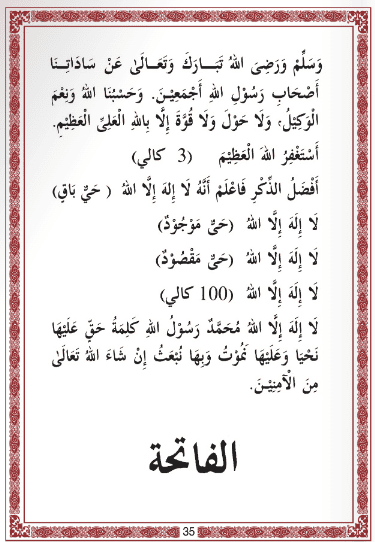 وَسَلِّمْ وَرَضِىَ اللهُ تَبَـارَكَ وَتَعَـالَىٰ عَنْ سَادَاتِـنَا
أَصْحَابِ رَسُوْلِ اللهِ أَجْمَعِيْنَ. وَحَسْبُنَا اللهُ وَنِعْمَ
الْوَكِيْلُ، وَلَا حَوْلَ وَلَا قُوَّةَ إِلَّا بِاللهِ الْعَلِىِّ الْعَظِيْمِ.
أَسْتَغْفِرُ اللهَ الْعَظِيْمَ (3 كالي)
أَفْضَلُ الذِّكْرِ فَاعْلَمْ أَنَّهُ لَا إِلٰهَ إِلَّا اللهُ (حَيٌّ بَاقٍ)
لَا إِلٰهَ إِلَّا اللهُ (حَيٌّ مَوْجُوْدٌ)
لَا إِلٰهَ إِلَّا اللهُ (حَيٌّ مَقْصُوْدٌ)
لَا إِلٰهَ إِلَّا اللهُ (100 كالي)
لَا إِلٰهَ إِلَّا اللهُ مُحَمَّدٌ رَسُوْلُ اللهِ كَلِمَةُ حَقٍّ عَلَيْهَا
نَحْيَا وَعَلَيْهَا نَمُوْتُ وَبِهَا نُبْعَثُ إِنْ شَاءَ اللهُ تَعَالَىٰ
مِنَ الْآمِنِيْنَ.
الفاتحة
35